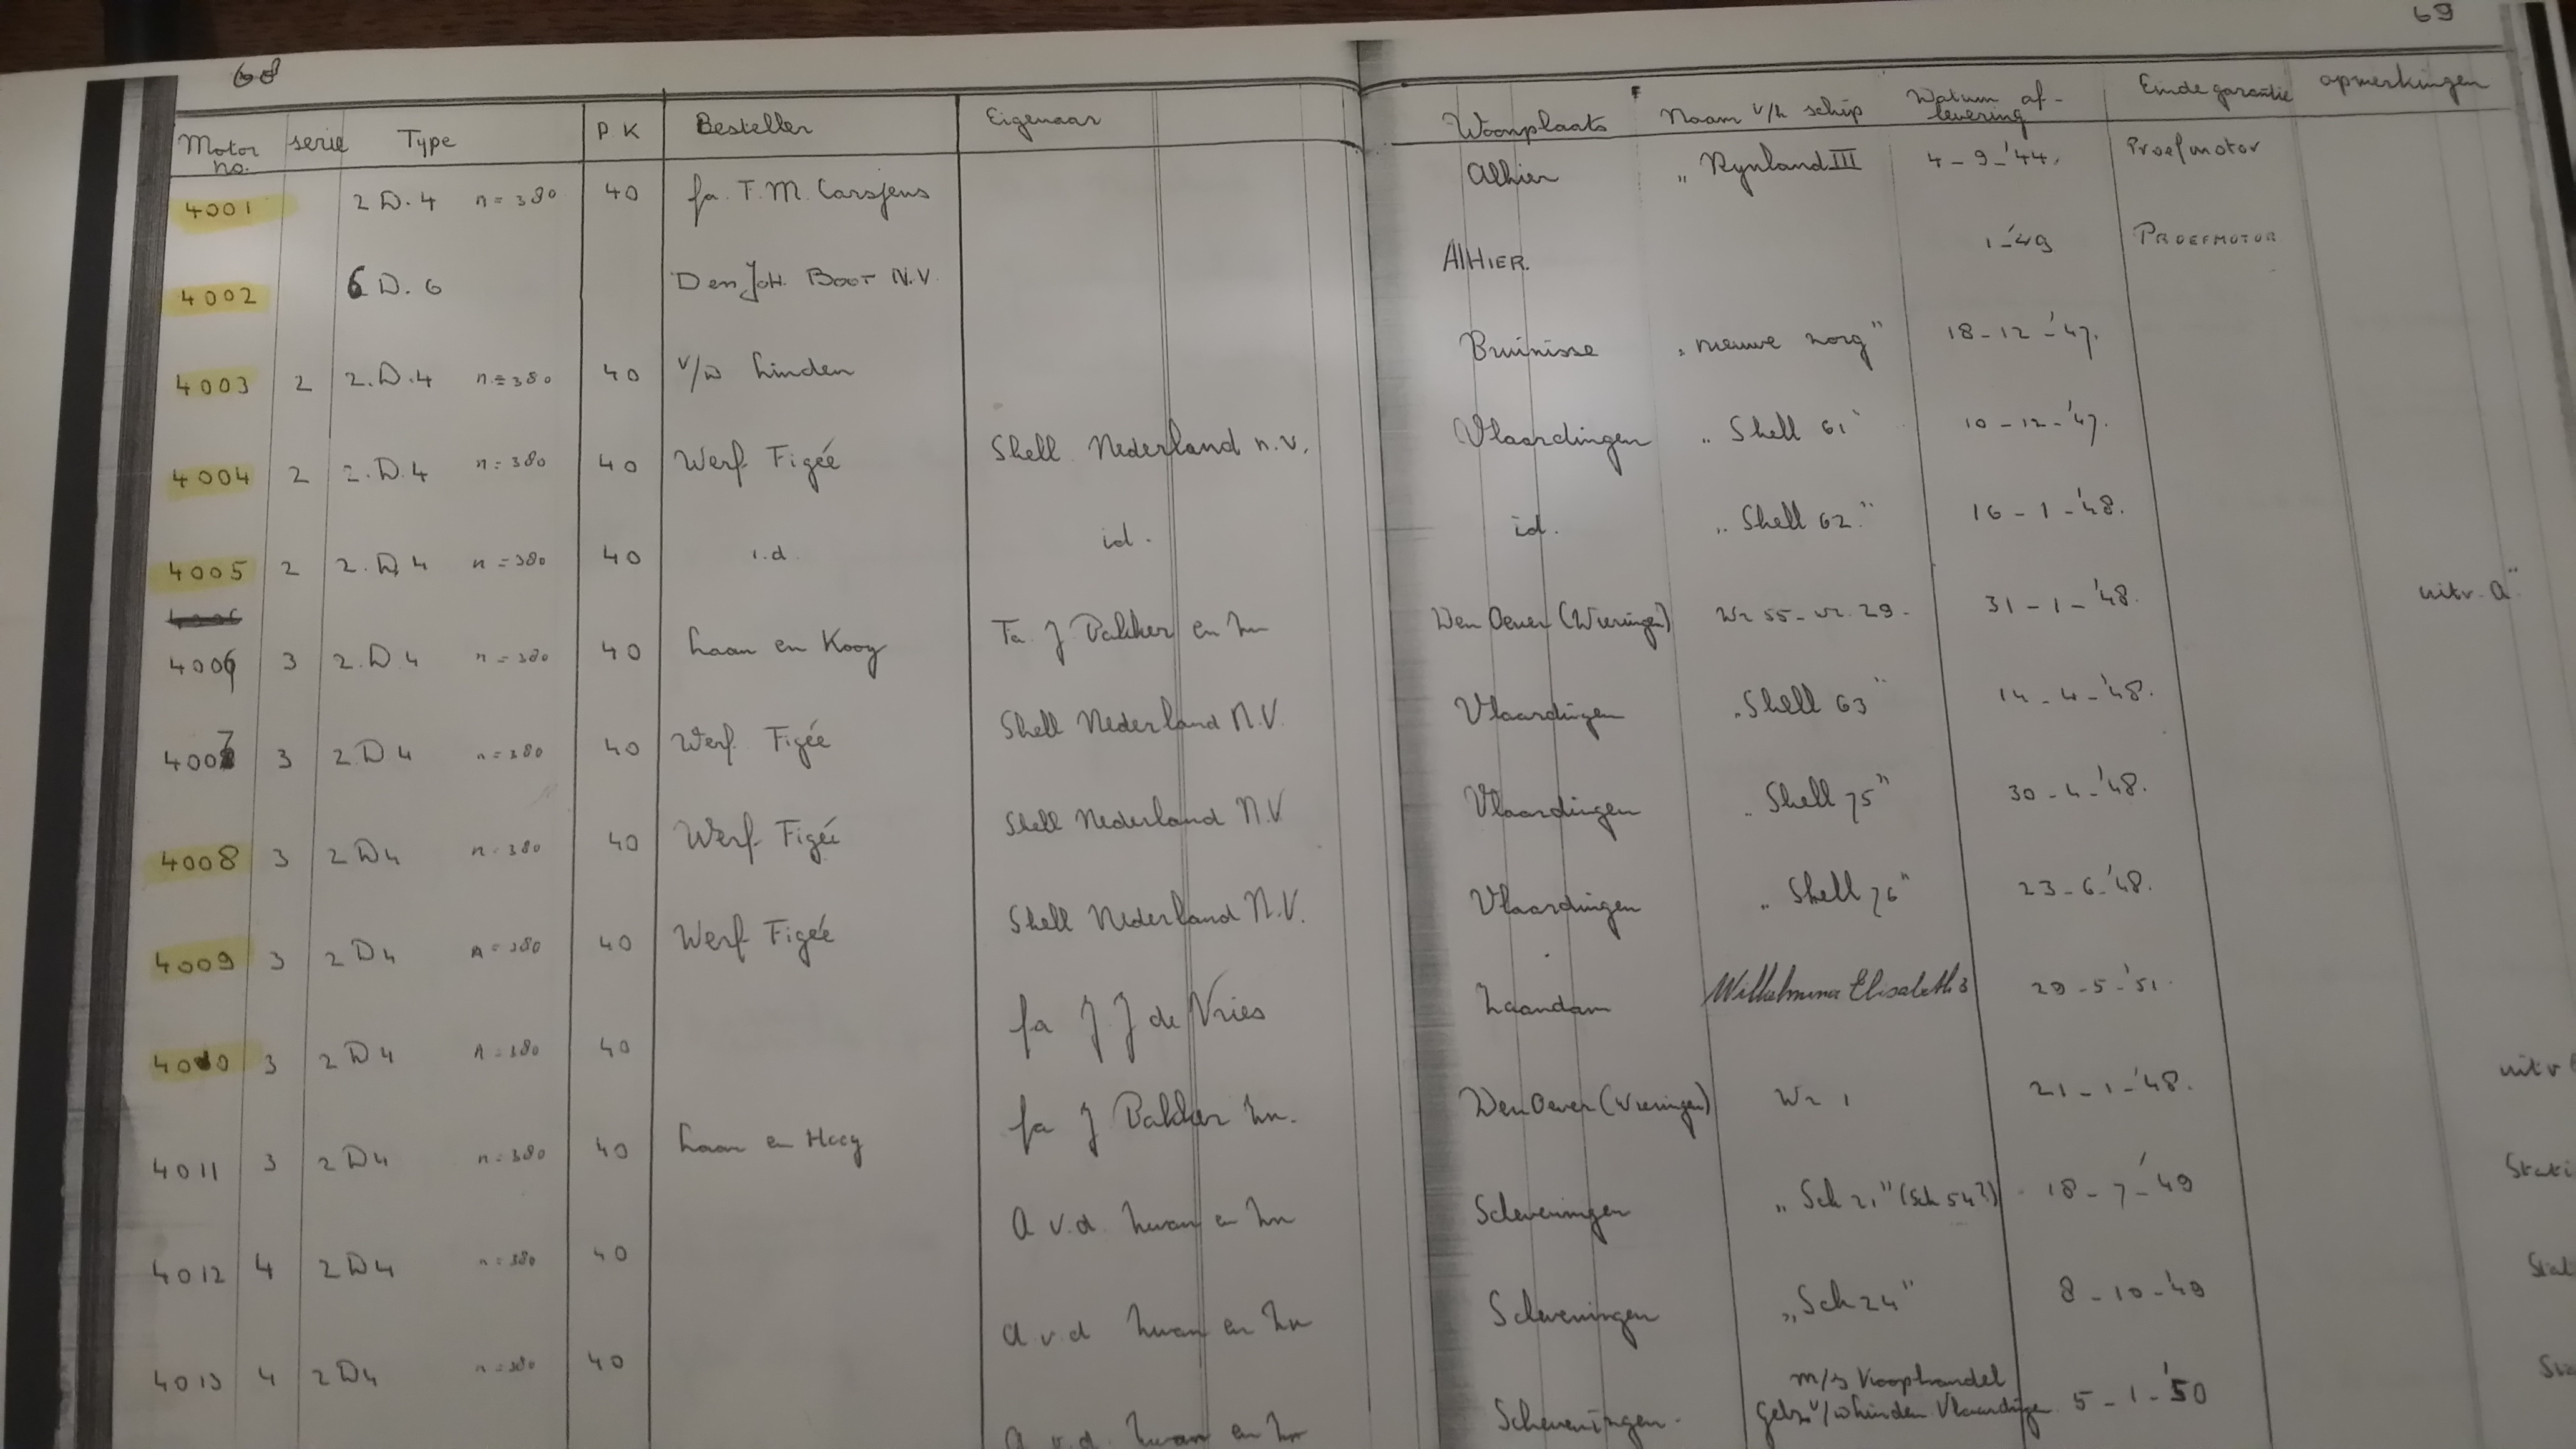 68
69
Motor no. serie Type P.K Besteller Eigenaar Woonplaats Naam v/h schip Datum af-levering Einde garantie opmerkingen
4001 2 D.4 n=380 40 fa. T.M. Carsjens Alhier „Rynland III 4-9-'44. Proefmotor
4002 6 D.6 Den Joh. Boot N.V. AlHIER. 1-'49 PROEFMOTOR
4003 2 2.D.4 n=380 40 v/d Linden Bruinisse „nieuwe zorg" 18-12-'47.
4004 2 2.D.4 n=380 40 Werf Figée Shell Nederland n.v. Vlaardingen „Shell 61" 10-12-'47.
4005 2 2.D.4 n=380 40 i.d id. id. „Shell 62" 16-1-'48.
4006 3 2.D.4 n=380 40 Laan en Kooy Fa J Bakker en Zn Den Oever (Wieringen) Wr 55 - wr. 29 - 31-1-'48. uitv. a"
4007 3 2.D4 n=380 40 Werf Figée Shell Nederland N.V. Vlaardingen „Shell 63" 14-4-'48.
4008 3 2D4 n=380 40 Werf Figée Shell Nederland N.V. Vlaardingen „Shell 75" 30-4-'48.
4009 3 2D4 n=380 40 Werf Figée Shell Nederland N.V. Vlaardingen „Shell 76" 23-6-'48.
4010 3 2D4 n=380 40 fa J J de Vries Zaandam Wilhelmina Elisabeth 3 29-5-'51.
4011 3 2D4 n=380 40 Laan en Kooy fa J Bakker Zn. Den Oever (Wieringen) Wr 1 21-1-'48. uitv
4012 4 2D4 n=380 40 A v.d. Zwan en Zn Scheveningen „Sch 21" (Sch 54?) 18-7-'49 Stati
4013 4 2D4 n=380 40 A v.d Zwan en Zn Scheveningen „Sch 24" 8-10-'49 Stat
A v.d. Zwan en Zn Scheveningen. m/s Koophandel 5-1-'50 Sta
Gebr. v/d Linden Vlaardingen